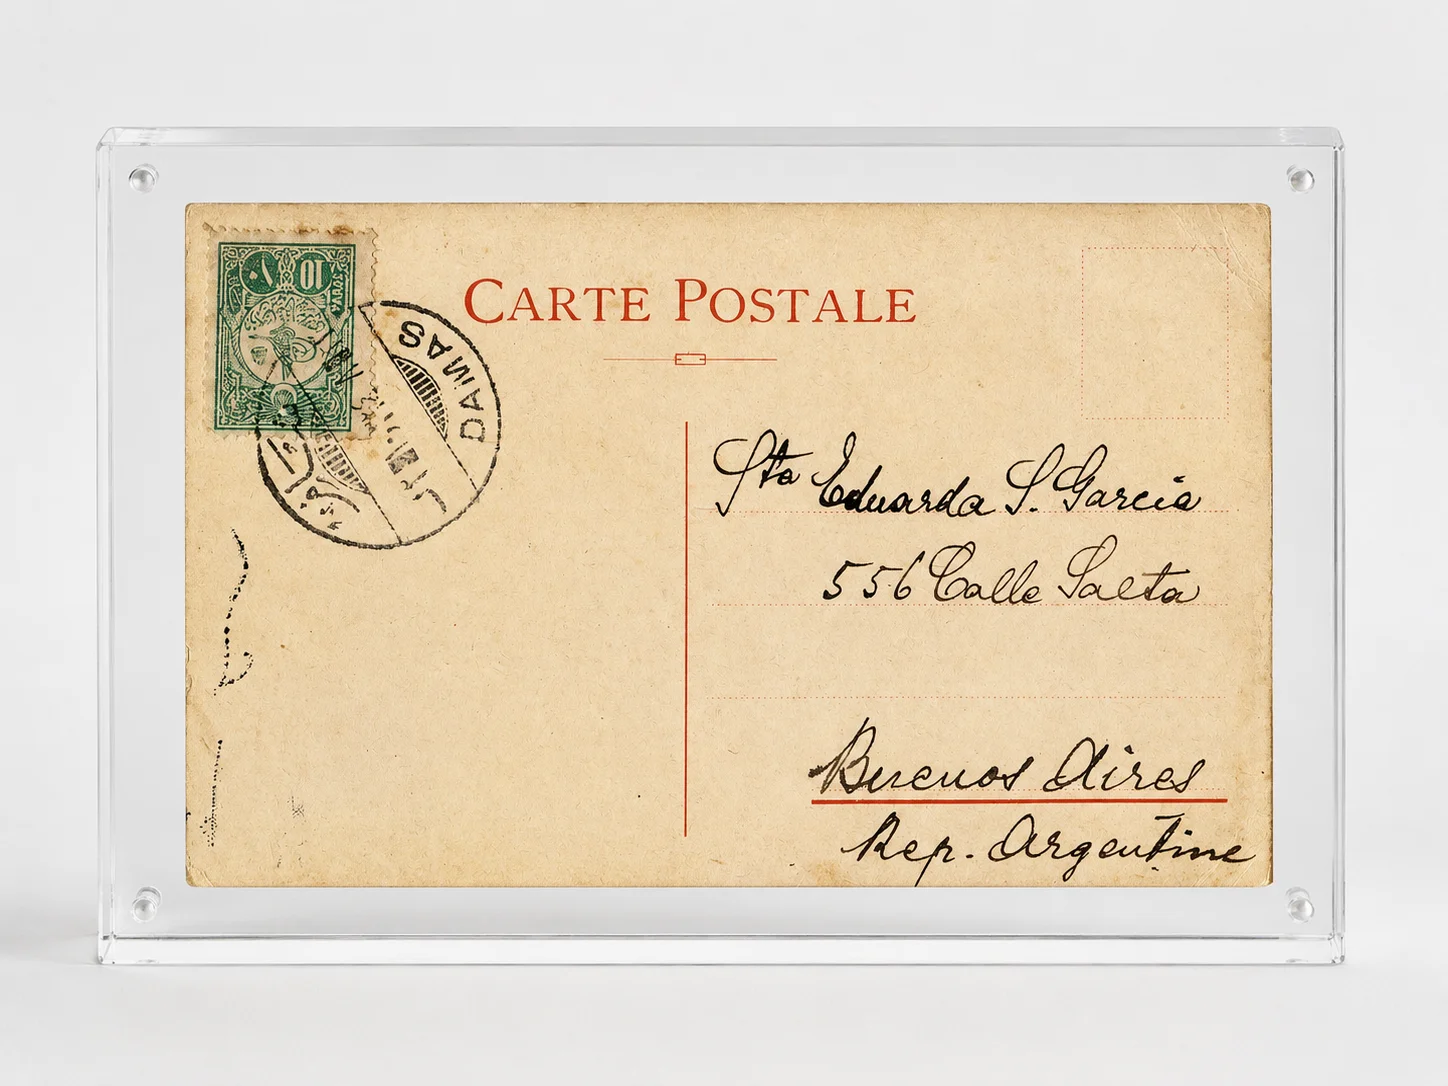 10
CARTE POSTALE
DAMAS
Sta Eduarda S. Garcia
556 Calle Salta
Buenos Aires
Rep. Argentine